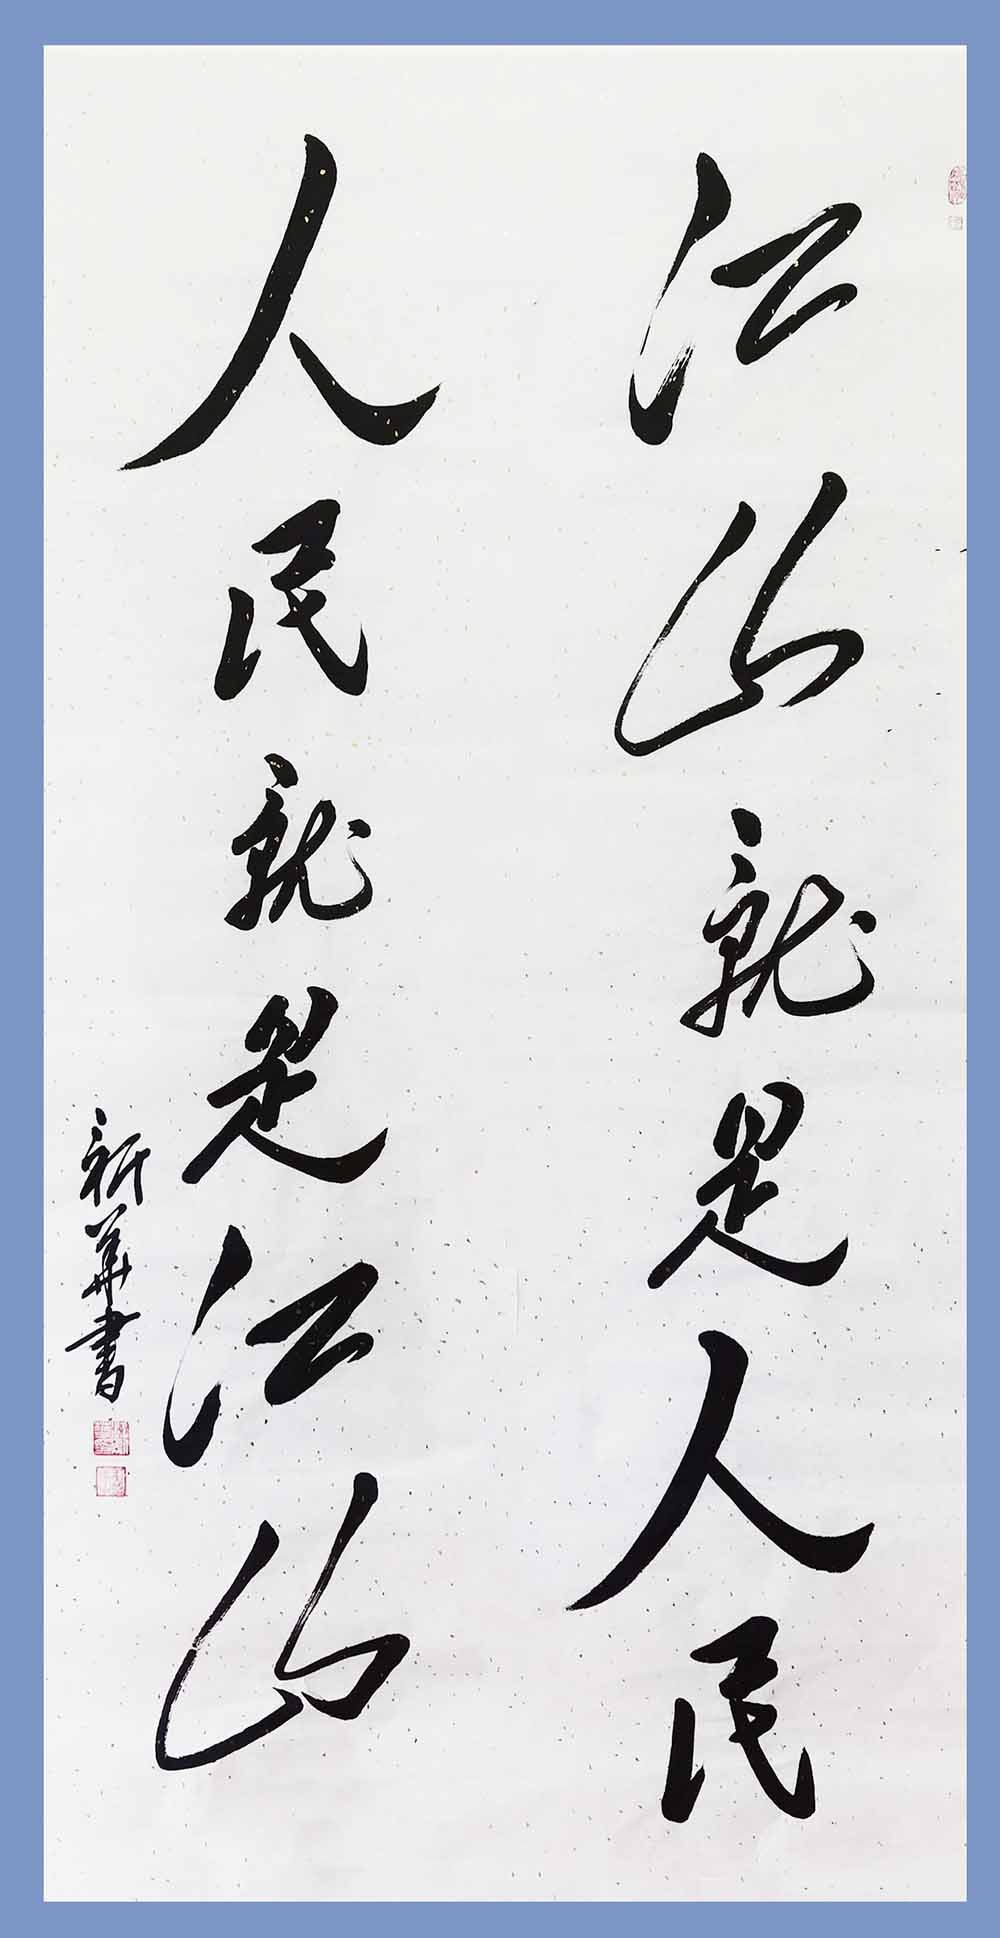 江山就是人民
人民就是江山
新華書